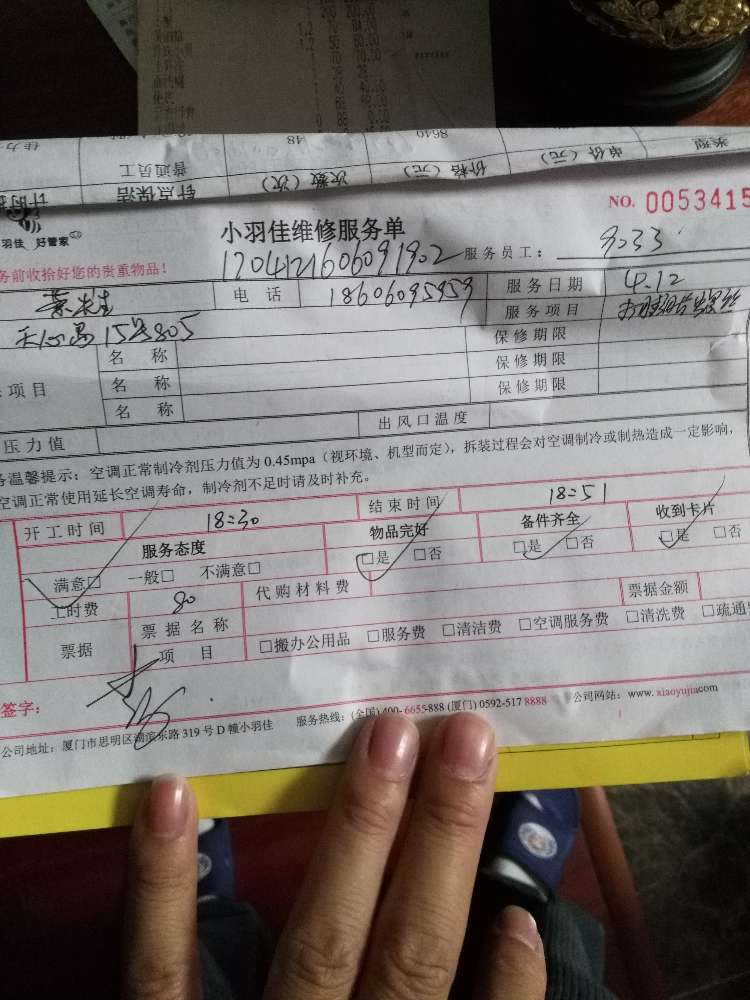 计时 针点保洁 次数（次） 价格（元） 单价（元） 类型
普通员工 48 8640
NO. 0053415
羽佳 好管家
小羽佳维修服务单
务前收拾好您的贵重物品！
1704121606091902 服务员工： 9033
电 话 18606095959 服务日期 4.12
天心岛15号805 服务项目
名 称 保修期限
项目 名 称 保修期限
名 称 保修期限
压力值 出风口温度
温馨提示：空调正常制冷剂压力值为 0.45mpa（视环境、机型而定），拆装过程会对空调制冷或制热造成一定影响，
空调正常使用延长空调寿命，制冷剂不足时请及时补充。
开工时间 18:30 结束时间 18:51
服务态度 物品完好 备件齐全 收到卡片
满意□ 一般□ 不满意□ □是 □否 □是 □否 □是 □否
工时费 80 代购材料费 票据金额
票据 票据名称 □搬办公用品 □服务费 □清洁费 □空调服务费 □清洗费 □疏通
项 目
签字：
公司地址：厦门市思明区湖滨东路 319 号 D 幢小羽佳 服务热线：(全国) 400-6655-888 (厦门) 0592-517 8888 公司网站：www.xiaoyujia.com